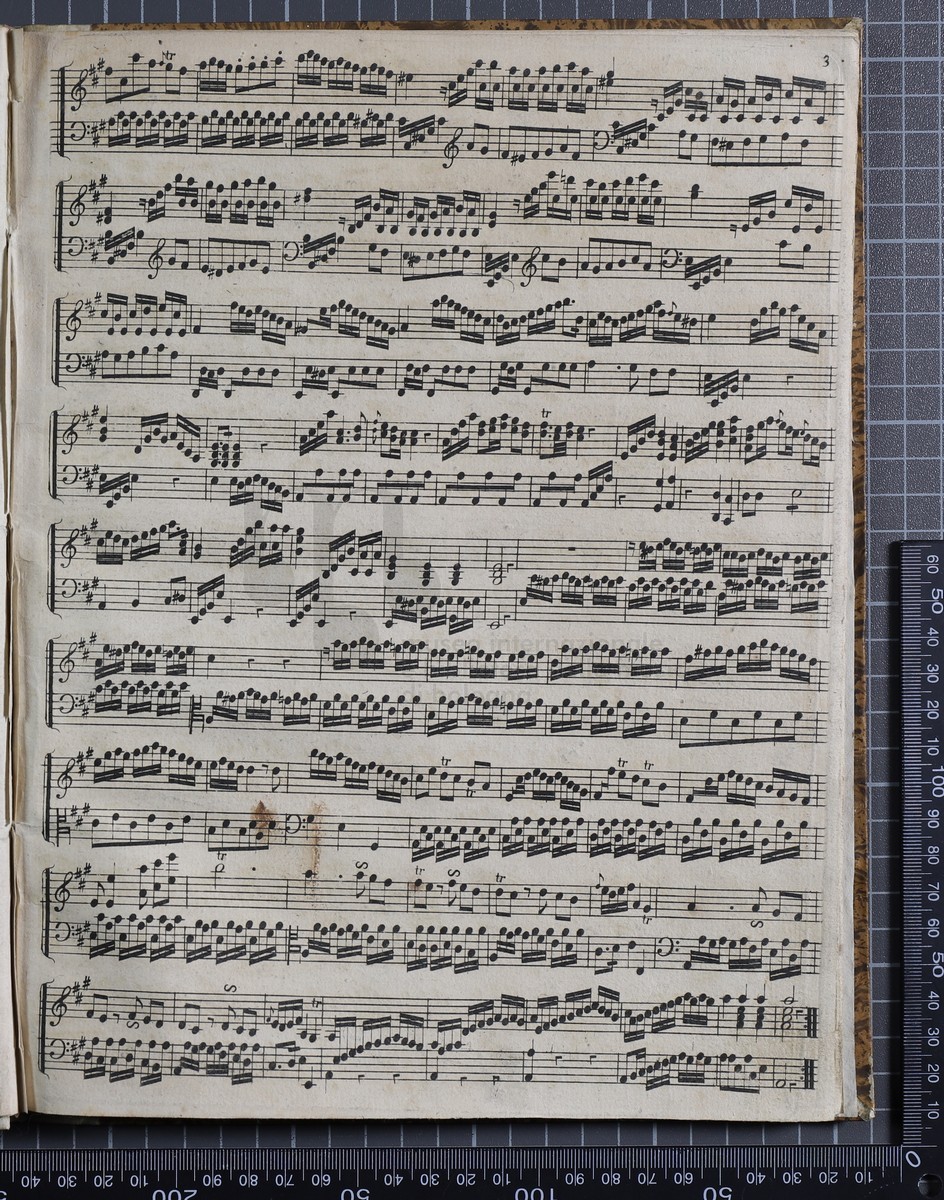 3
tr
tr
museo internazionale
di bologna
tr
tr
tr
tr
tr
S
tr
S
tr
tr
S
S
S
tr
60 50 40 30 20 10 100 90 80 70 60 50 40 30 20 10 0
40 30 20 10 200 90 80 70 60 50 40 30 20 10 100 90 80 70 60 50 40 30 20 10